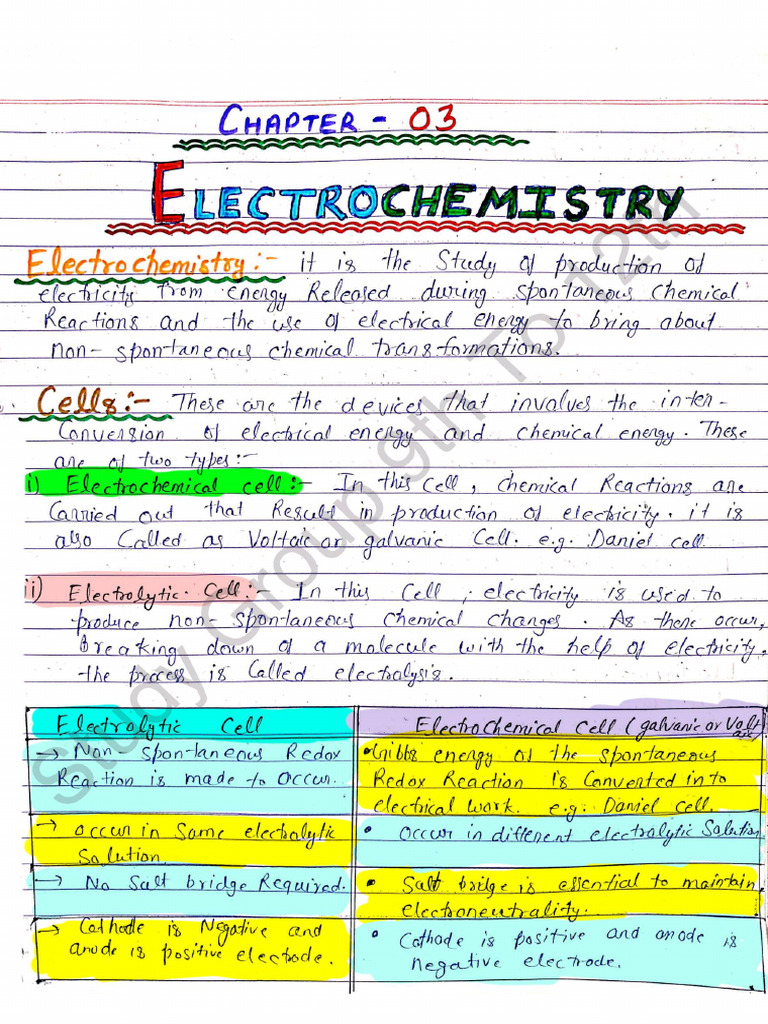 CHAPTER - 03
ELECTROCHEMISTRY
Electrochemistry :- it is the Study of production of
electricity from energy Released during spontaneous Chemical
Reactions and the use of electrical energy to bring about
non-spontaneous chemical transformations.
Cells :- These are the devices that involves the inter-
Conversion of electrical energy and chemical energy. These
are of two types :-
i) Electrochemical cell :- In this Cell, chemical Reactions are
Carried out that Result in production of electricity. it is
also Called as Voltaic or galvanic Cell. e.g. Daniel cell
ii) Electrolytic Cell :- In this Cell, electricity is used to
produce non-spontaneous chemical changes. As there occur,
Breaking down of a molecule with the help of electricity,
the process is Called electrolysis.
Electrolytic Cell
→ Non-spontaneous Redox
Reaction is made to Occur.
→ occur in Same electrolytic
Solution.
→ No Salt bridge Required.
→ Cathode is Negative and
anode is positive electrode.
Electrochemical Cell (galvanic or Voltaic)
• Gibbs energy of the spontaneous
Redox Reaction is Converted in to
electrical work. e.g: Daniel cell.
• Occur in different electrolytic Solution.
• Salt bridge is essential to maintain
electroneutrality.
• Cathode is positive and anode is
negative electrode.
Study Group 9th To 12th